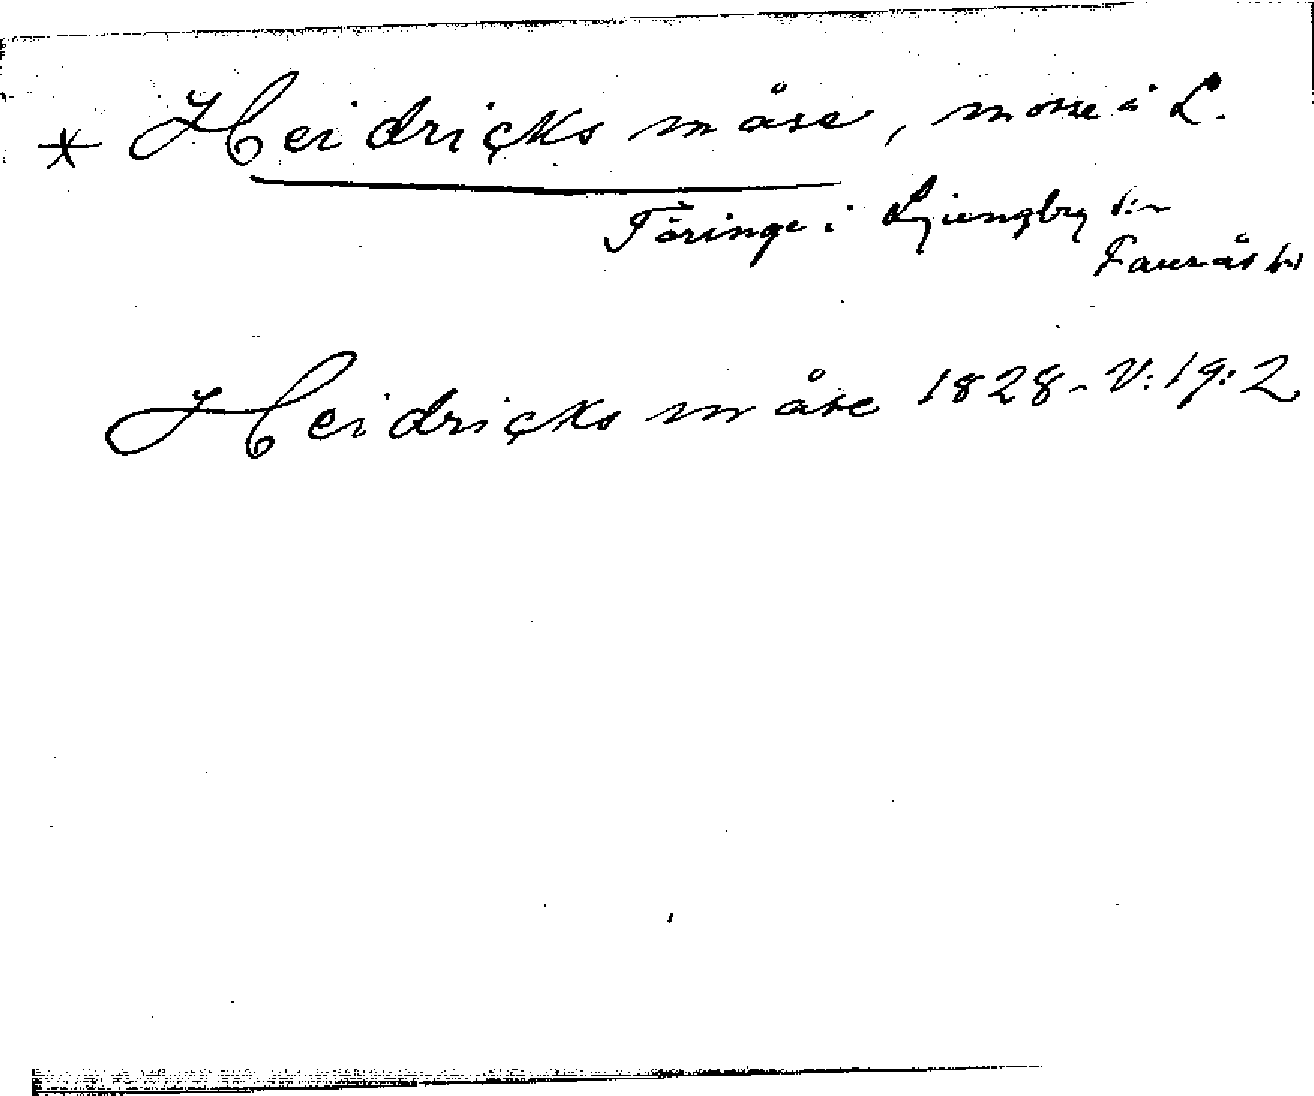 * Heidricks måse, mosse å L.
Töringe i Ljungby sn
Faurås hd
Heidricks måse 1828 - V:19:2